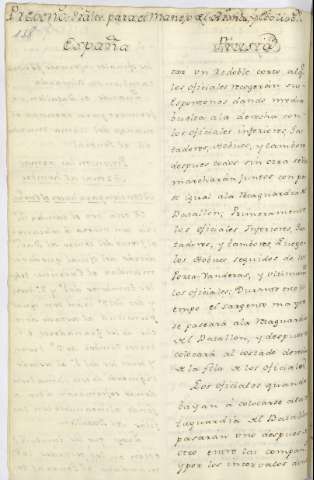 para el Manejo del Arma
118
España
Prusia
car un Redoble corto, al q.e
los oficiales recogeran sus
espontones dando media
buelta ala derecha con
los oficiales inferiores, Gas-
tadores, Pobues, y tambores
despues todos sin otra señal
marcharán juntos con pa-
so igual ala Retaguardia del
Batallón, Primeramente
los oficiales Inferiores, Gas-
tadores, y tambores, Luego
los Pobues seguidos de los
Porta-Vanderas, y ultimam.te
los oficiales; Durante este
tempo el sargento mayor
se paseará ala Retaguardia
del Batallon, y despues se
colocará al costado derecho
de la fila de los oficiales
Los oficiales quando
bayan á colocarse ala Re-
taguardia del Batallon
pasaran uno despues de
otro entre las compañ.
y por los intervalos de